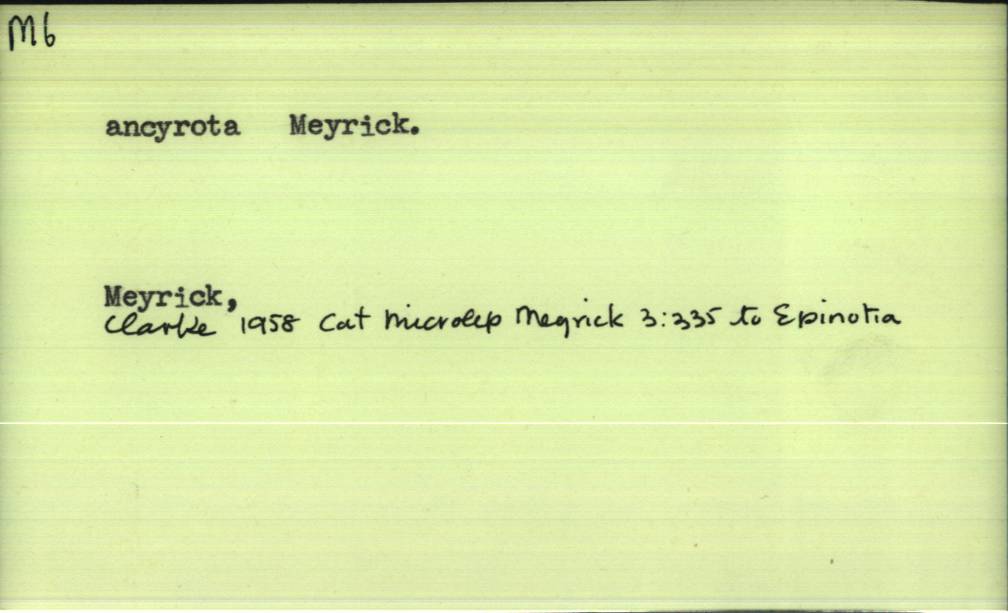 M6
ancyrota Meyrick.
Meyrick,
Clarke 1958 Cat microlep Meyrick 3:335 to Epinotia